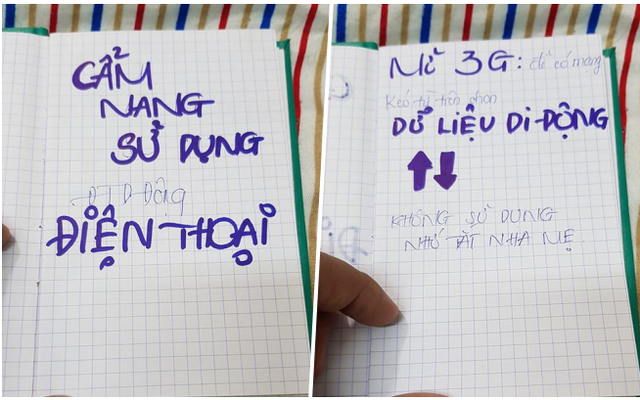 CẨM
NANG
SỬ DỤNG
ĐTD Động
ĐIỆN THOẠI
Mở 3G: để có mạng
Kéo từ trên chọn
DỮ LIỆU DI ĐỘNG
KHÔNG SỬ DỤNG
NHỚ TẮT NHA MẸ